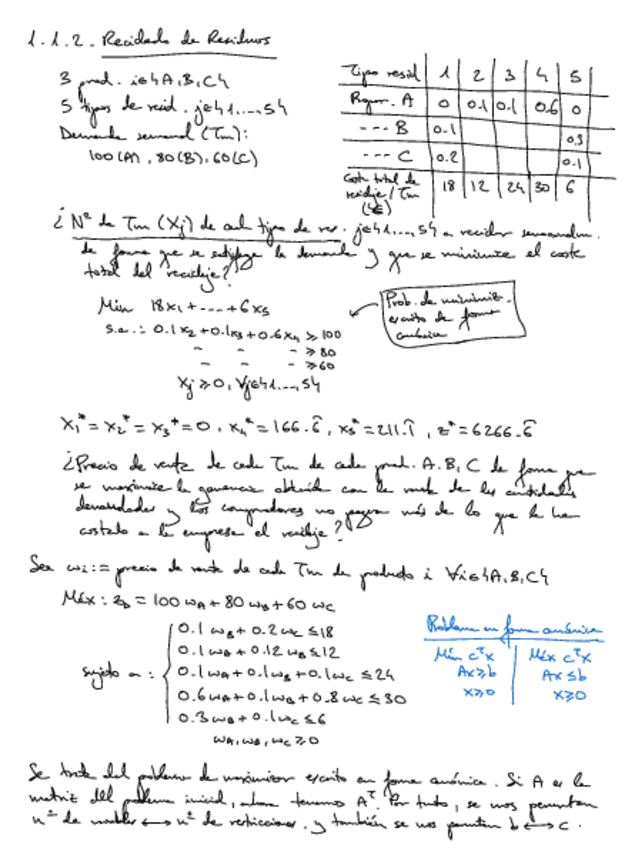 1.1.2.- Reciclado de Residuos
3 prod. i∈{A,B,C}
5 tipos de resid. j∈{1,...,5}
Demanda semanal (Tm):
100(A), 80(B), 60(C)
Tipo resid 1 2 3 4 5
Propor. A 0 0.1 0.1 0.6 0
--- B 0.1 0.3
--- C 0.2 0.1
Coste total de reciclaje/Tm (€) 18 12 24 30 6
¿Nº de Tm (Xj) de cada tipo de res. j∈{1,...,5} a reciclar
de forma que se satisfaga la demanda y que se minimice el coste
total del reciclaje?
Min 18x₁+...+6x₅
s.a.: 0.1x₂+0.1x₃+0.6x₄ ≥ 100
- - - ≥ 80
- - - ≥ 60
Xj ≥ 0, ∀j∈{1,...,5}
Prob. de minimiz.
escrito de forma
canónica
X₁*=X₂*=X₃*=0, X₄*=166.6̂, X₅*=211.1̂, z*=6266.6̂
¿Precio de venta de cada Tm de cada prod. A,B,C de forma que
se maximice la ganancia obtenida con la venta de las cantidades
demandadas y los compradores no paguen más de lo que le ha
costado a la empresa el reciclaje?
Sea wi:= precio de venta de cada Tm de producto i ∀i∈{A,B,C}
Máx: z_D = 100w_A + 80w_B + 60w_C
sujeto a:
0.1w_B + 0.2w_C ≤ 18
0.1w_A + 0.12w_B ≤ 12
0.1w_A + 0.1w_B + 0.1w_C ≤ 24
0.6w_A + 0.1w_B + 0.8w_C ≤ 30
0.3w_B + 0.1w_C ≤ 6
w_A, w_B, w_C ≥ 0
Problema en forma canónica
Mín cᵀx Máx cᵀx
Ax≥b Ax≤b
x≥0 x≥0
Se trata del problema de maximizar escrito en forma canónica. Si A es la
matriz del problema inicial, ahora tenemos Aᵀ. Por tanto, se nos permutan
nº de variables ⟷ nº de restricciones, y también se nos permutan b ⟷ c.